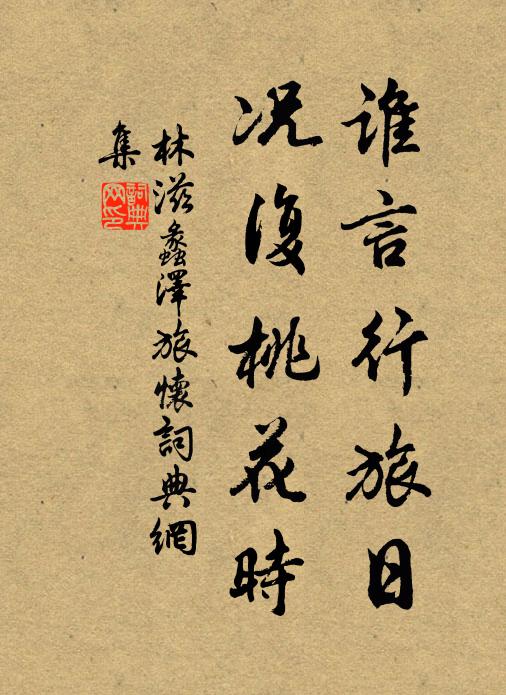 谁言行旅日
况復桃花時
林滋蠡澤旅懷詞典網
集
詞典網印